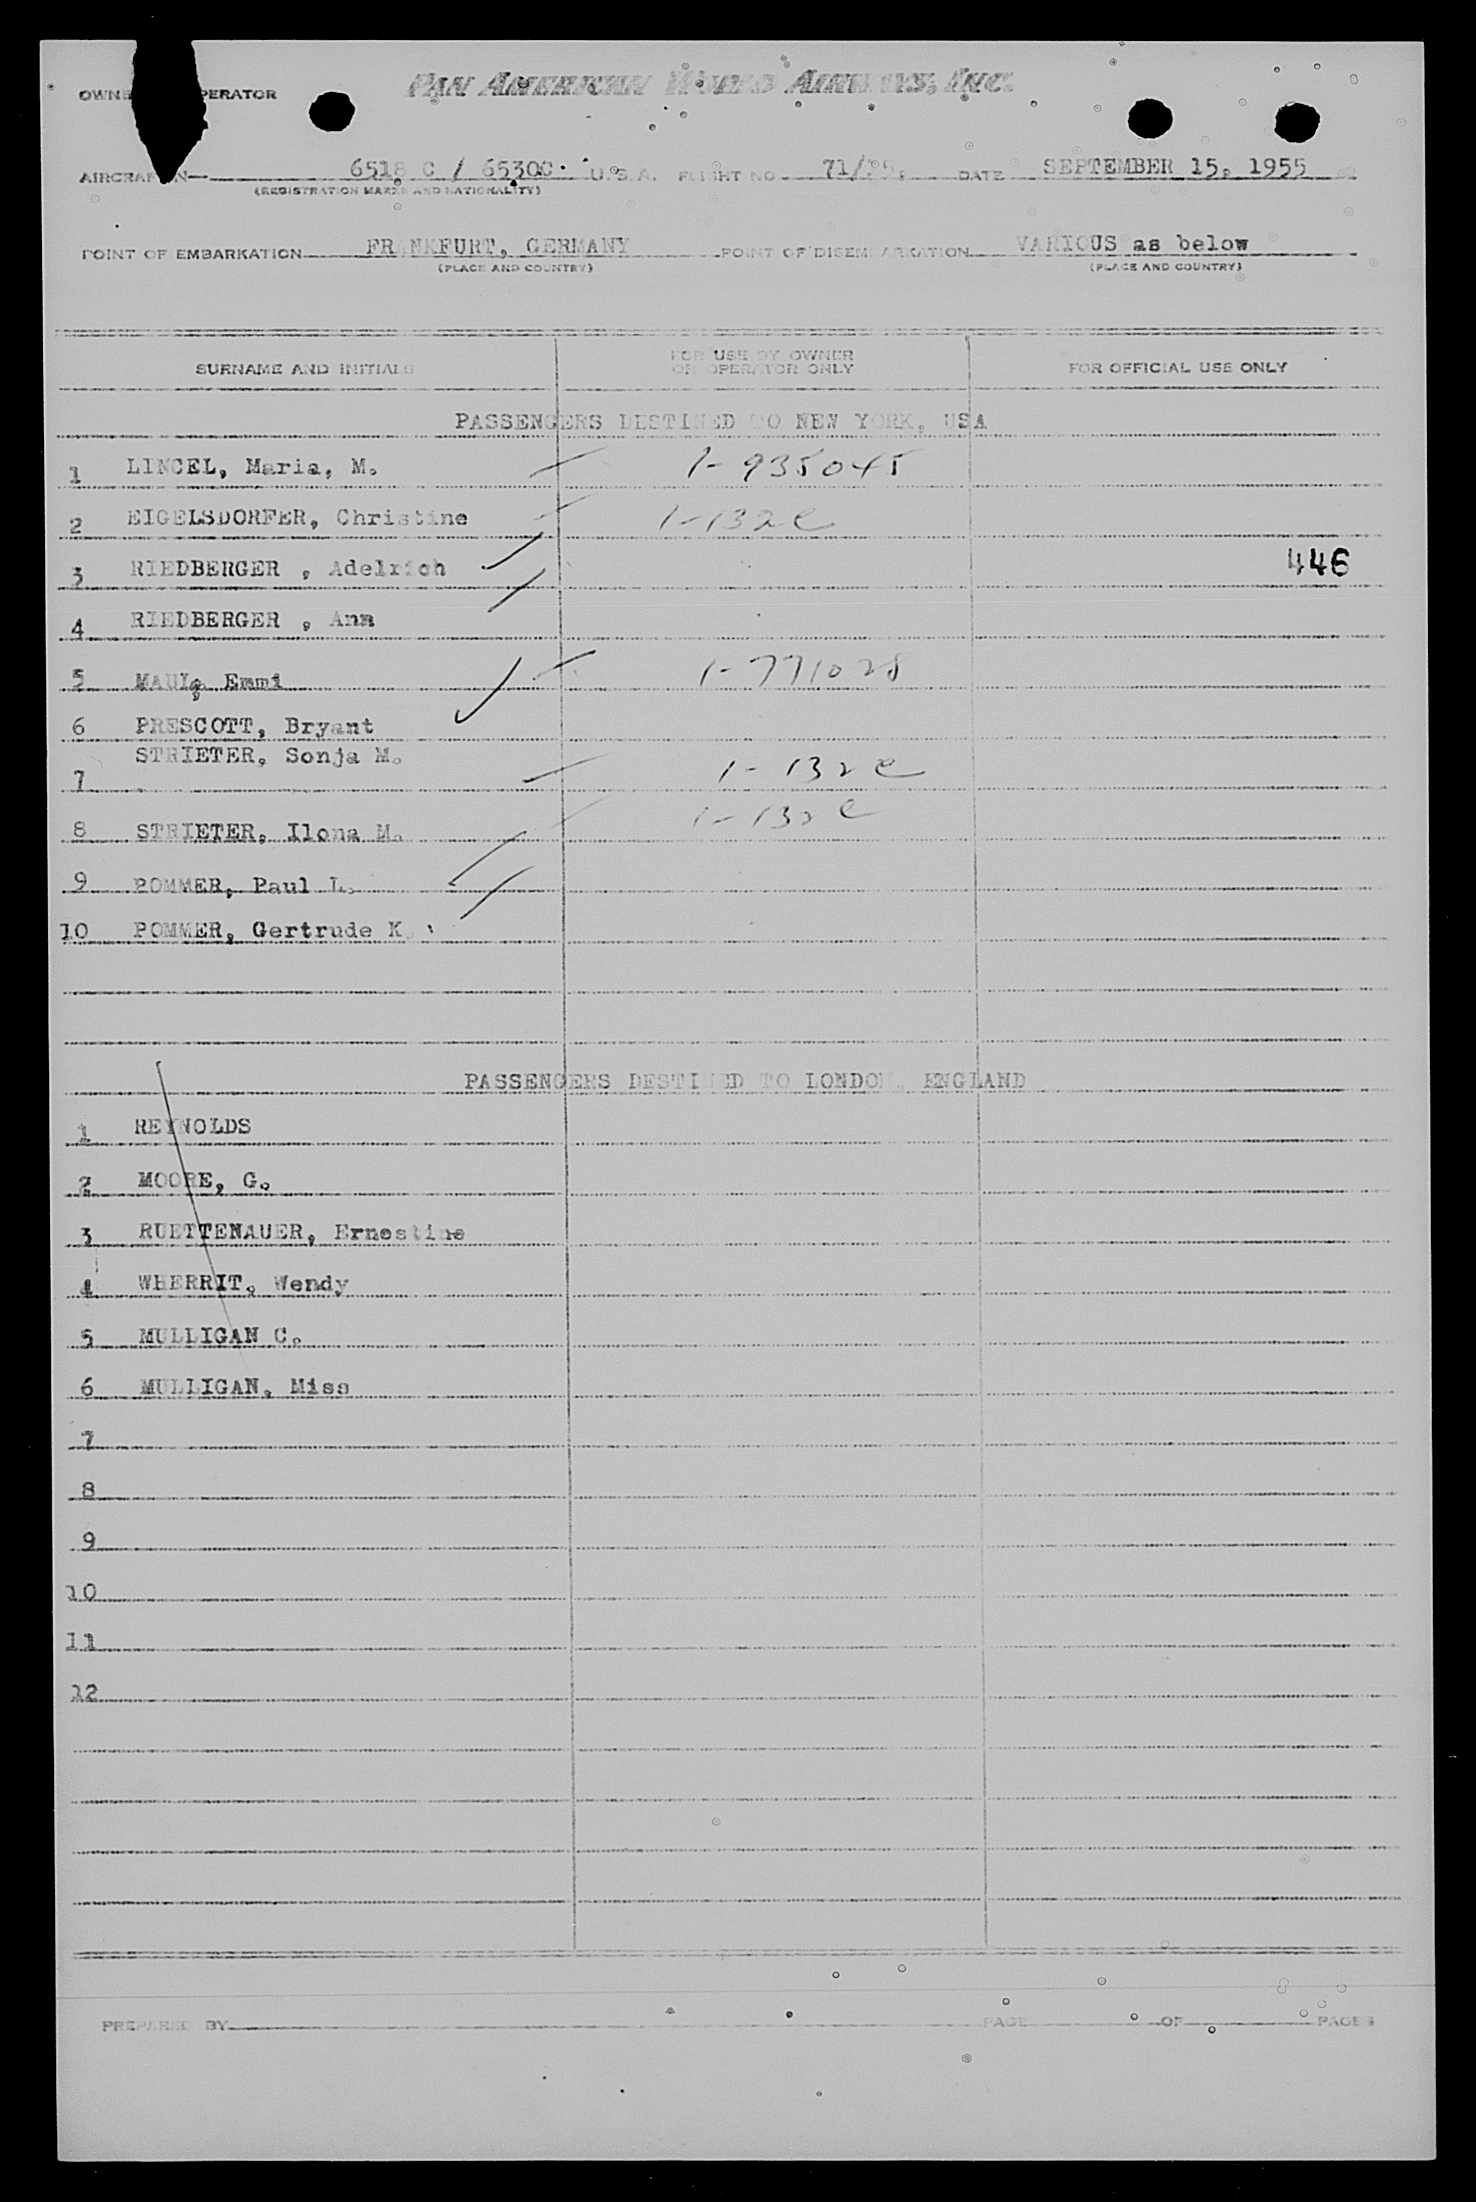 PAN AMERICAN WORLD AIRWAYS, INC.
OWNE PERATOR
AIRCRAF N 6518 C / 6530C. U.S.A. FLIGHT NO 71/ DATE SEPTEMBER 15, 1955
(REGISTRATION MARKS AND NATIONALITY)
POINT OF EMBARKATION FRANKFURT, GERMANY POINT OF DISEMBARKATION VARIOUS as below
(PLACE AND COUNTRY) (PLACE AND COUNTRY)
SURNAME AND INITIALS FOR USE BY OWNER OR OPERATOR ONLY FOR OFFICIAL USE ONLY
PASSENGERS DESTINED TO NEW YORK, USA
1 LINCEL, Maria, M. 1-935045
2 EIGELSDORFER, Christine 1-132e
3 RIEDBERGER , Adelrich 446
4 RIEDBERGER , Ann
5 Emmi 1-771028
6 PRESCOTT, Bryant
7 STRIETER, Sonja M. 1-132e
8 STRIETER, Ilona M. 1-132e
9 POMMER, Paul L.
10 POMMER, Gertrude K.
PASSENGERS DESTINED TO LONDON, ENGLAND
1 REYNOLDS
2 MOORE, G.
3 RUETTENAUER, Ernestine
4 WHERRIT, Wendy
5 MULLIGAN C.
6 MULLIGAN, Miss
7
8
9
10
11
12
PREPARED BY PAGE OF PAGES